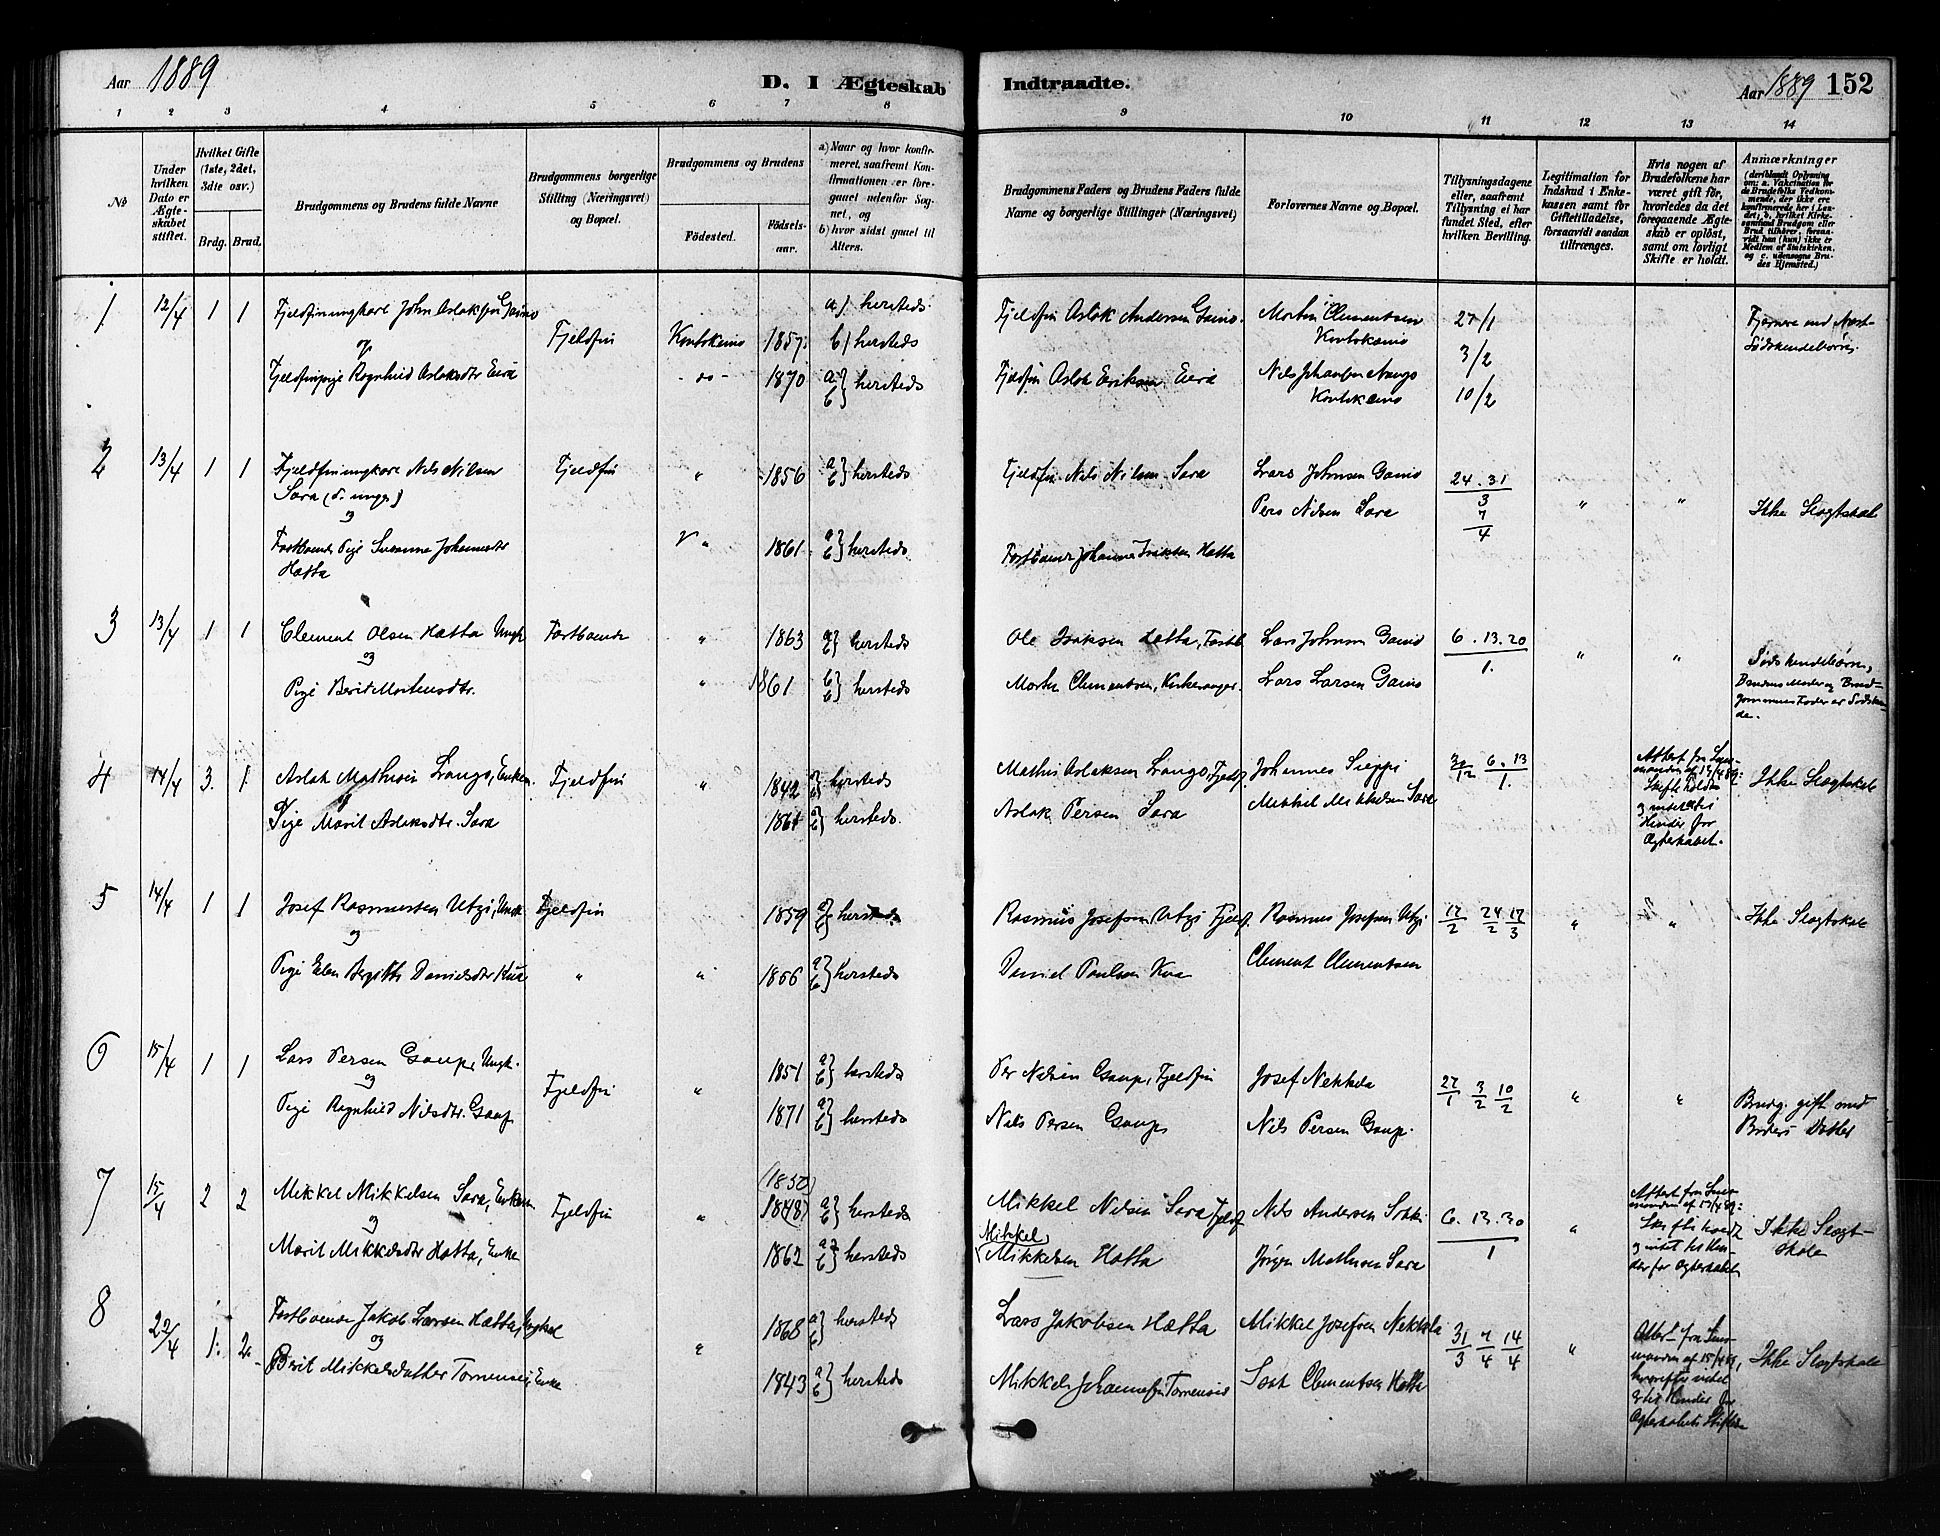 Aar 1889
D. I Ægteskab Indtraadte.
Aar 1889 152
1 2 3 4 5 6 7 8 9 10 11 12 13 14
No
Under hvilken Dato er Ægteskabet stiftet.
Hvilket Gifte (1ste, 2det, 3die osv.)
Brdg. Brud.
Brudgommens og Brudens fulde Navne
Brudgommens borgerlige Stilling (Næringsvei) og Bopæl.
Brudgommens og Brudens
Fødested.
Fødselsaar.
a) Naar og hvor konfirmeret, saafremt Konfirmationen er foregaaet udenfor Sognet, og
b) hvor sidst gaaet til Alters.
Brudgommens Faders og Brudens Faders fulde Navne og borgerlige Stillinger (Næringsvei)
Forlovernes Navne og Bopæl.
Tillysningsdagene eller, saafremt Tillysning ei har fundet Sted, efter hvilken Bevilling.
Legitimation for Indskud i Enkekassen samt for Giftetilladelse, forsaavidt saadan tiltrænges.
Hvis nogen af Brudefolkene har været gift før, hvorledes da det foregaaende Ægteskab er opløst, samt om lovligt Skifte er holdt.
Anmærkninger (deriblandt Oplysning om: a. Vakcination for de Brudefolks Vedkommende, der ikke ere konfirmerede her i Landet; b. hvilket Kirkesamfund Brudgom eller Brud tilhører, forsaavidt han (hun) ikke er Medlem af Statskirken, og c. udensogns Brudes Hjemsted.)
1 12/4 1 1 Fjeldfinungkarl John Aslaksen Gaino Fjeldfin Kautokeino 1857 a) hersteds b) hersteds Fjeldfin Aslak Andersen Gaino. Morten Clementsen Kautokeino 27/1 3/2 10/2
og
Fjeldfinpige Ragnhild Aslaksdtr Eira - do - 1870 a b } hersteds Fjeldfin Aslak Eriksen Eira Nils Johannsen Kautokeino
Fjernere end Næst-Sødskendebørn.
2 13/4 1 1 Fjeldfinungkarl Nils Nilsen Sara (d. yngr.) Fjeldfin " 1856 a b } hersteds Fjeldfin Nils Nilsen Sara Lars Johnsen Gaino 24. 31 / 3 7/4 " " Ikke Slægtskab
og Per Nilsen Sara
Fastboende Pige Susanna Johannesdtr Hætta " 1861 a b } hersteds Fastboende Johannes Isaksen Hætta
3 13/4 1 1 Clement Olsen Hætta Ungk. Fastboende " 1863 a b } hersteds Ole Isaksen Hætta, Fastb. Lars Johnsen Gaino 6. 13. 20 / 1. " "
og
Pige Berit Mortensdtr. " 1861 a b } hersteds Morten Clementsen, Kirkesanger. Lars Larsen Gaino
Sødskendebørn, Brudens Moder og Brudgommens Fader er Sødskende.
4 14/4 3. 1 Aslak Mathisen Lango, Enkem. Fjeldfin " 1842 a b } hersteds Mathis Aslaksen Lango, Fjeldf. Johannes Sieppi 30/12 6. 13 / 1.
og
Pige Marit Aslaksdtr. Sara 1861 a b } hersteds. Aslak Persen Sara Mikkel Mikkelsen Sara
Attest fra Lensmanden af 13/4 89: Skifte holdt og intet til Hinder for Ægteskabet.
Ikke Slægtskab
5 14/4 1 1 Josef Rasmussen Utzi, Ungk. Fjeldfin 1859 a b } hersteds Rasmus Josefsen Utzi Fjeldf. Rasmus Josefsen Utzi 17/2 24/2 17/3 " " Ikke Slægtskab
og
Pige Elen Birgitte Danielsdtr Kua " " 1856 a b } hersteds Daniel Paulsen Kua Clement Clementsen
6 15/4 1 1 Lars Persen Gaup, Ungk. Fjeldfin " 1851 a b } hersteds Per Nilsen Gaup, Fjeldfin Josef Nekkela 27/1 3/2 10/2 " "
og
Pige Ragnhild Nilsdtr. Gaup 1871 a b } hersteds Nils Persen Gaup Nils Persen Gaup.
Brudg. gift med Broders Datter
7 15/4 2 2 Mikkel Mikkelsen Sara, Enkem. Fjeldfin " (1850) 1848 a b } hersteds Mikkel Nilsen Sara Fjeldf. Nils Andersen Sokki 6. 13. 30 / 1 "
og
Marit Mikkelsdtr Hætta, Enke 1862 a b } hersteds Mikkel Mikkelsen Hætta Jørgen Mathisen Sara
Attest fra Lensmanden af 13/4 89: Skifte holdt og intet til Hinder for Ægteskabet
Ikke Slægtskab
8 22/4 1. 2. Fastboende Jakob Larsen Hætta, Ungkarl " 1868 a b } hersteds Lars Jakobsen Hætta Mikkel Josefsen Nekkela 31/3 7/4 14/4 "
og
Berit Mikkelsdatter Tornensis, Enke 1843 a b } hersteds Mikkel Johannesen Tornensis Clementsen Hætta
Attest fra Lensmanden af 15/4 89, hvorefter intet er til Hinder for Ægteskabets Stiftelse
Ikke Slægtskab